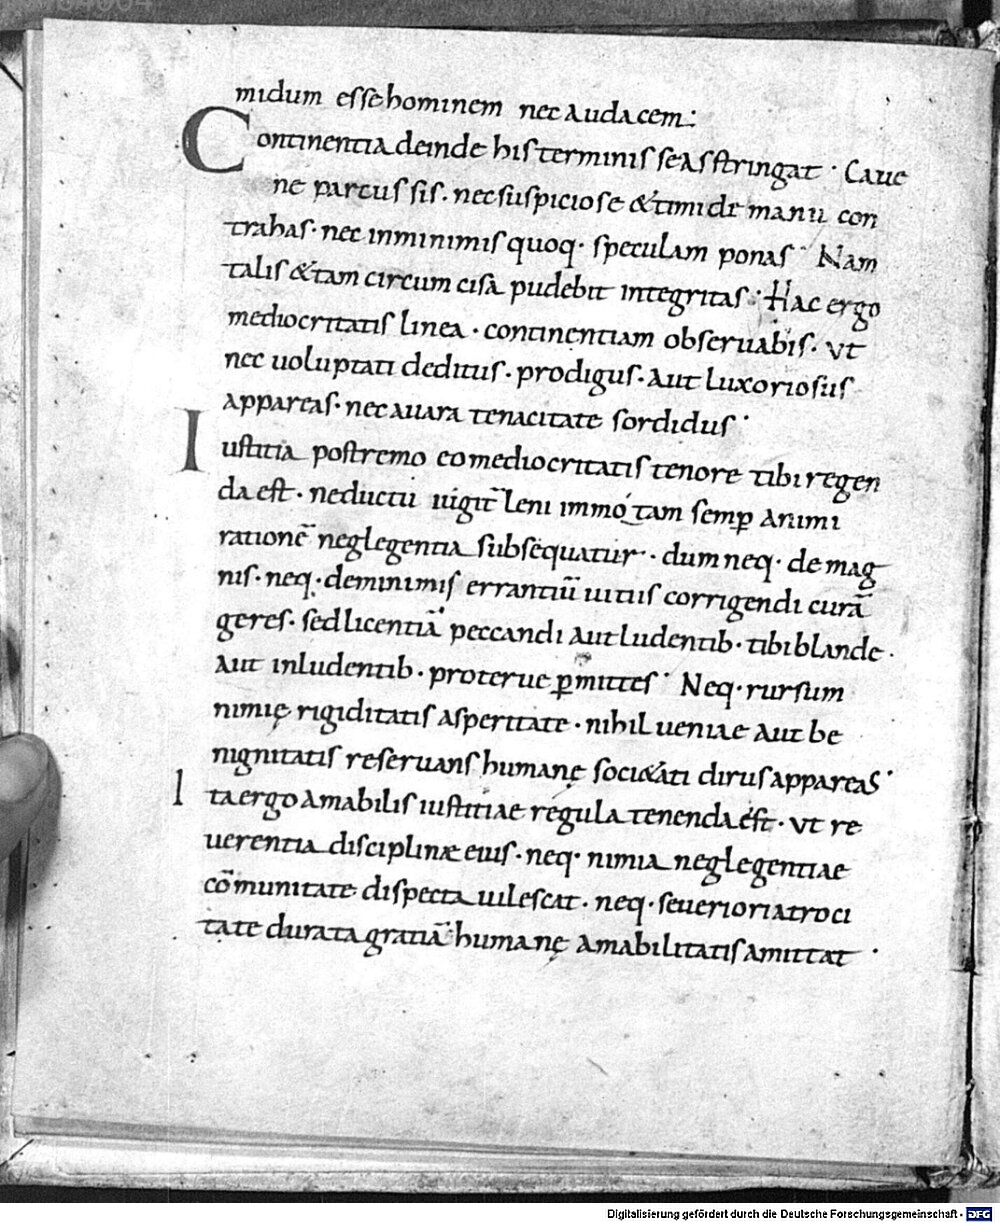 midum esse hominem nec audacem:
Continentia deinde his terminis se astringat · Caue
ne parcus sis · nec suspiciose & timide manu con
trahas · nec in minimis quoq· speculam ponas · Nam
talis & tam circumcisa pudebit integritas · Hac ergo
mediocritatis linea · continentiam obseruabis · Vt
nec uoluptati deditus · prodigus · aut luxoriosus
appareas · nec auara tenacitate sordidus ·
Iustitia postremo eo mediocritatis tenore tibi regen
da est · ne ductu iugit̄ leni immotam semꝑ animi
rationē neglegentia subsequatur · dum neq· de mag
nis · neq· de minimis errantiū uitiis corrigendi curā
geres · sed licentiā peccandi aut ludentib· tibi blande ·
aut inludentib· proterue ꝑmittes · Neq· rursum
nimię rigiditatis asperitate · nihil ueniae aut be
nignitatis reseruans humanę soci&ati dirus appareas ·
Ita ergo amabilis iustitiae regula tenenda est · Vt re
uerentia disciplinæ eius · neq· nimia neglegentiae
cōmunitate dispecta uilescat · neq· seueriori atroci
tate durata gratiā humanę amabilitatis amittat ·
Digitalisierung gefördert durch die Deutsche Forschungsgemeinschaft - DFG